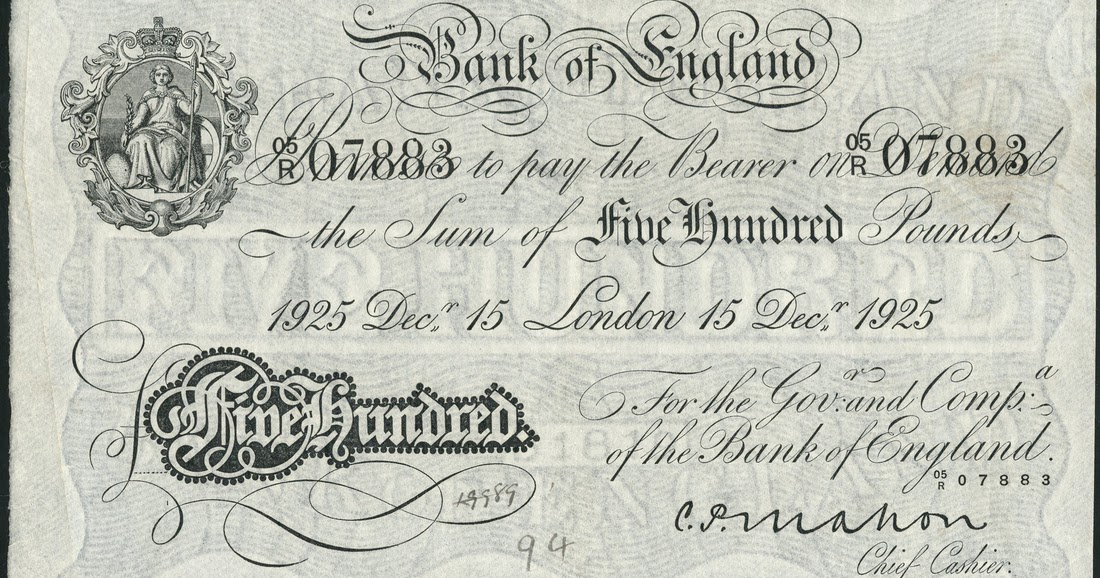 Bank of England
05/R 07883 I Promise to pay the Bearer on Demand 05/R 07883
the Sum of Five Hundred Pounds
1925 Decr. 15 London 15 Decr. 1925
£ Five Hundred.
For the Govr. and Compa.
of the Bank of England.
05/R 07883
C.P. Mahon
Chief Cashier.
94